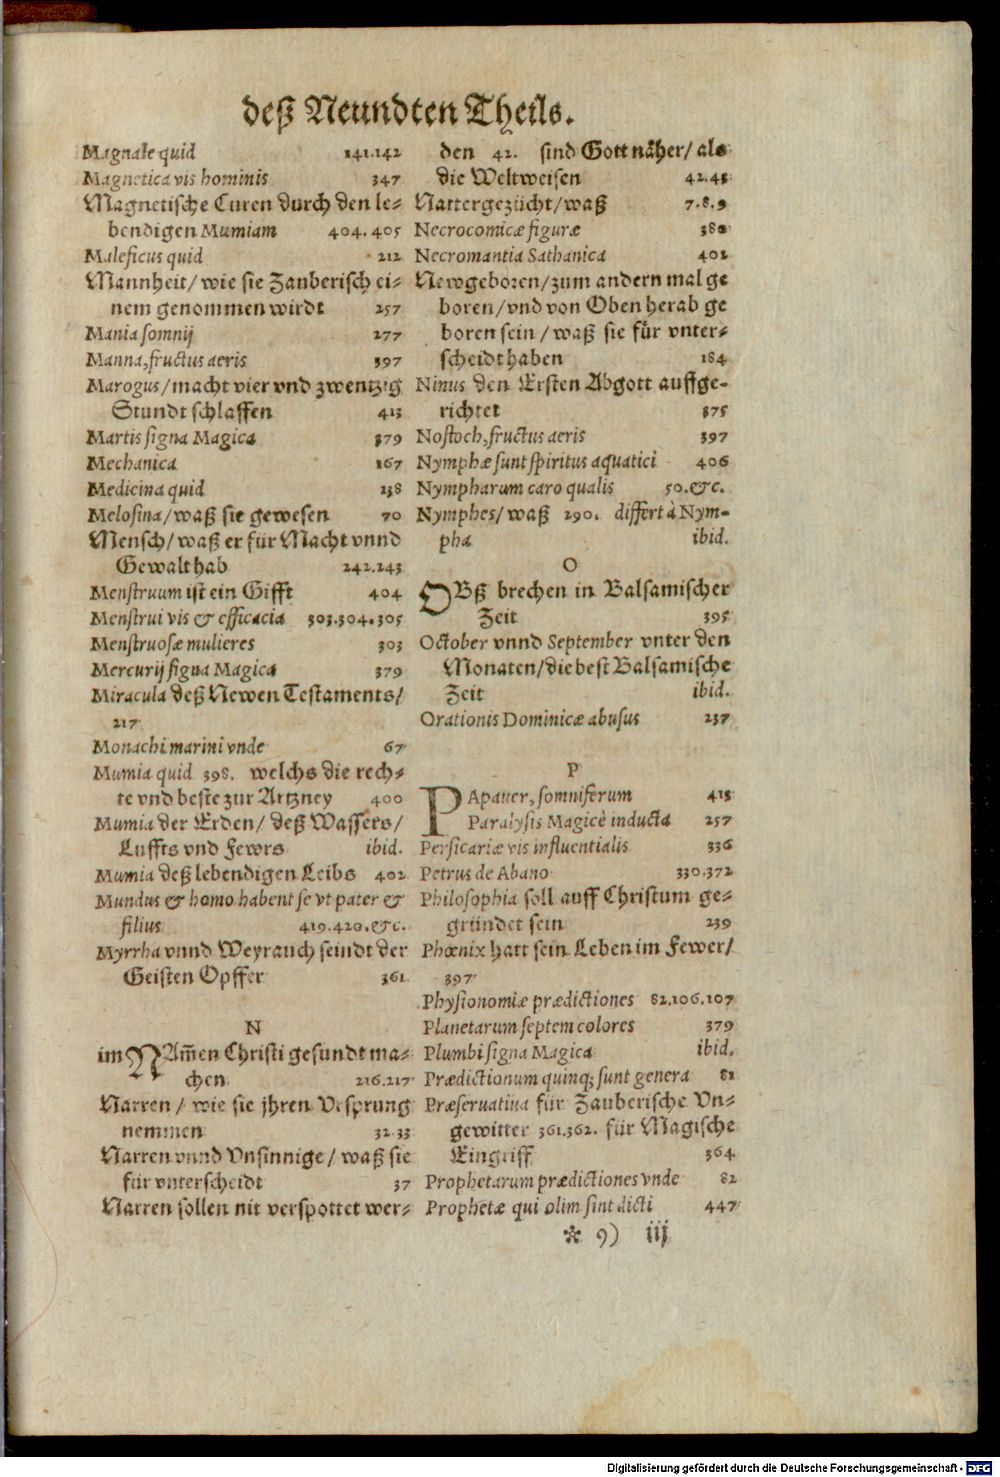 deß Neundten Theils.
Magnale quid 141.142
Magnetica vis hominis 347
Magnetische Curen durch den le-
bendigen Mumiam 404.405
Maleficus quid 212
Mannheit/wie sie Zauberisch ei-
nem genommen wirdt 257
Mania somnij 277
Manna, fructus aeris 397
Marogus/macht vier vnd zwentzig
Stundt schlaffen 413
Martis signa Magica 379
Mechanica 167
Medicina quid 138
Melosina/waß sie gewesen 70
Mensch/waß er für Macht vnnd
Gewalt hab 242.243
Menstruum ist ein Gifft 404
Menstrui vis & efficacia 303.304.305
Menstruosæ mulieres 303
Mercurij signa Magica 379
Miracula deß Newen Testaments/
217
Monachi marini vnde 67
Mumia quid 398. welchs die rech-
te vnd beste zur Artzney 400
Mumia der Erden/ deß Wassers/
Luffts vnd Fewrs ibid.
Mumia deß lebendigen Leibs 402
Mundus & homo habent se vt pater &
filius 419.420.&c.
Myrrha vnnd Weyrauch seindt der
Geisten Opffer 361
N
im NAm̃en Christi gesundt ma-
chen 216.217
Narren / wie sie jhren Vrsprung
nemmen 32.33
Narren vnnd Vnsinnige/ waß sie
für vnterscheidt 37
Narren sollen nit verspottet wer-
den 42. sind Gott näher/ als
die Weltweisen 42.43
Nattergezücht/waß 7.8.9
Necrocomicæ figuræ 380
Necromantia Sathanica 402
Newgeboren/zum andern mal ge
boren/vnd von Oben herab ge
boren sein / waß sie für vnter-
scheidt haben 184
Ninus den Ersten Abgott auffge-
richtet 375
Nostoch, fructus aeris 397
Nymphæ sunt spiritus aquatici 406
Nympharum caro qualis 50.&c.
Nymphes/ waß 290. differt à Nym-
pha ibid.
O
OBß brechen in Balsamischer
Zeit 395
October vnnd September vnter den
Monaten/die best Balsamische
Zeit ibid.
Orationis Dominicæ abusus 237
P
PApauer, somniferum 415
Paralysis Magicè inducta 257
Persicariæ vis influentialis 336
Petrus de Abano 330.372
Philosophia soll auff Christum ge-
gründet sein 239
Phœnix hatt sein Leben im Fewer/
397
Physionomiæ prædictiones 82.106.107
Planetarum septem colores 379
Plumbi signa Magica ibid.
Prædictionum quinq; sunt genera 81
Præseruatiua für Zauberische Vn-
gewitter 361.362. für Magische
Eingriff 364
Prophetarum prædictiones vnde 82
Prophetæ qui olim sint dicti 447
* y) iij
Digitalisierung gefördert durch die Deutsche Forschungsgemeinschaft - DFG